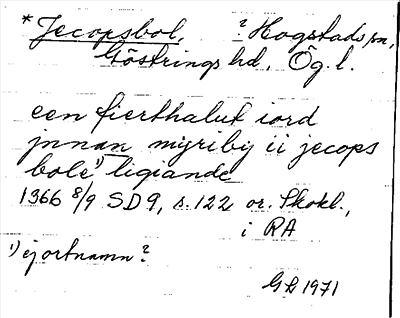 *Jecopsbol, ? Hogstads sn,
Göstrings hd, Ög. l.
een fierthalut iord
jnnan myriby ii jecops
bole¹⁾ ligiande
1366 8/9 SD 9, s. 122 or. Skokl.,
i RA
¹⁾ ej ortnamn?
GL 1971